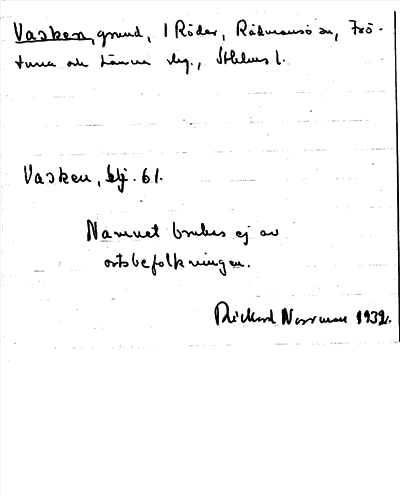 Vasken, grund, i Röder, Rådmansö sn, Frö-
tuna och Länna skg., Sthlms l.
Vasken, sjk. 61.
Namnet brukas ej av
ortsbefolkningen.
Rickard Norrman 1932.